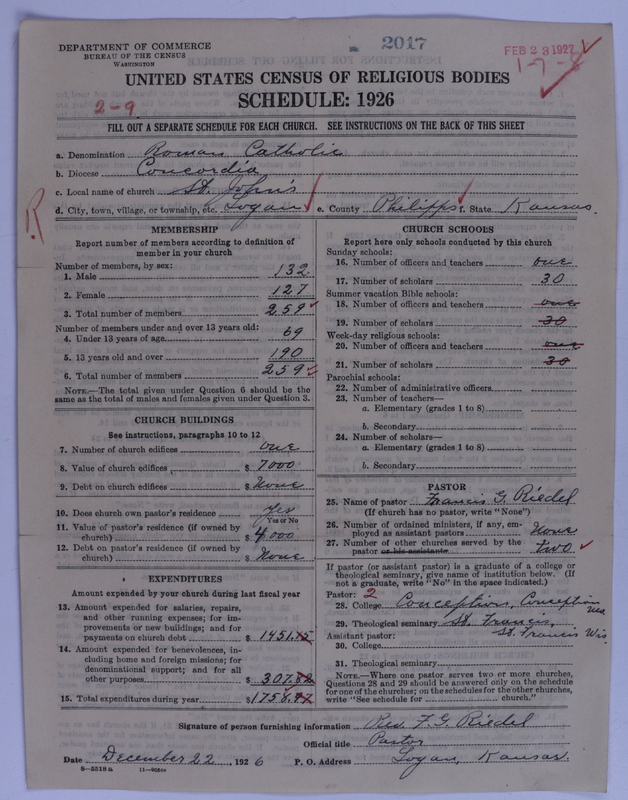 DEPARTMENT OF COMMERCE
BUREAU OF THE CENSUS
WASHINGTON
2017
FEB 23 1927
1-7-8
UNITED STATES CENSUS OF RELIGIOUS BODIES
2-9
SCHEDULE: 1926
FILL OUT A SEPARATE SCHEDULE FOR EACH CHURCH. SEE INSTRUCTIONS ON THE BACK OF THIS SHEET
a. Denomination Roman Catholic
b. Diocese Concordia
c. Local name of church St. John's
d. City, town, village, or township, etc. Logan e. County Philipps f. State Kansas.
R
MEMBERSHIP
Report number of members according to definition of
member in your church
Number of members, by sex:
1. Male 132
2. Female 127
3. Total number of members 259
Number of members under and over 13 years old:
4. Under 13 years of age 69
5. 13 years old and over 190
6. Total number of members 259
NOTE.—The total given under Question 6 should be the
same as the total of males and females given under Question 3.
CHURCH BUILDINGS
See instructions, paragraphs 10 to 12
7. Number of church edifices one
8. Value of church edifices $ 7000
9. Debt on church edifices $ None
10. Does church own pastor's residence Yes
Yes or No
11. Value of pastor's residence (if owned by
church) $ 4,000
12. Debt on pastor's residence (if owned by
church) $ None
EXPENDITURES
Amount expended by your church during last fiscal year
13. Amount expended for salaries, repairs,
and other running expenses; for im-
provements or new buildings; and for
payments on church debt $ 1451.15
14. Amount expended for benevolences, in-
cluding home and foreign missions; for
denominational support; and for all
other purposes $ 307.82
15. Total expenditures during year $ 1758.97
CHURCH SCHOOLS
Report here only schools conducted by this church
Sunday schools:
16. Number of officers and teachers one
17. Number of scholars 30
Summer vacation Bible schools:
18. Number of officers and teachers one
19. Number of scholars 30
Week-day religious schools:
20. Number of officers and teachers one
21. Number of scholars 30
Parochial schools:
22. Number of administrative officers
23. Number of teachers—
a. Elementary (grades 1 to 8)
b. Secondary
24. Number of scholars—
a. Elementary (grades 1 to 8)
b. Secondary
PASTOR
25. Name of pastor Francis G. Riedel
(If church has no pastor, write "None")
26. Number of ordained ministers, if any, em-
ployed as assistant pastors None
27. Number of other churches served by the
pastor or his assistants two
If pastor (or assistant pastor) is a graduate of a college or
theological seminary, give name of institution below. (If
not a graduate, write "No" in the space indicated.)
Pastor: 2
28. College Conception, Conception
29. Theological seminary St. Francis,
Assistant pastor: St. Francis Wis
30. College
31. Theological seminary
NOTE.—Where one pastor serves two or more churches,
Questions 28 and 29 should be answered only on the schedule
for one of the churches; on the schedules for the other churches,
write "See schedule for church."
Signature of person furnishing information Rev. F. G. Riedel
Official title Pastor
Date December 22, 1926 P. O. Address Logan, Kansas.
8—5318a